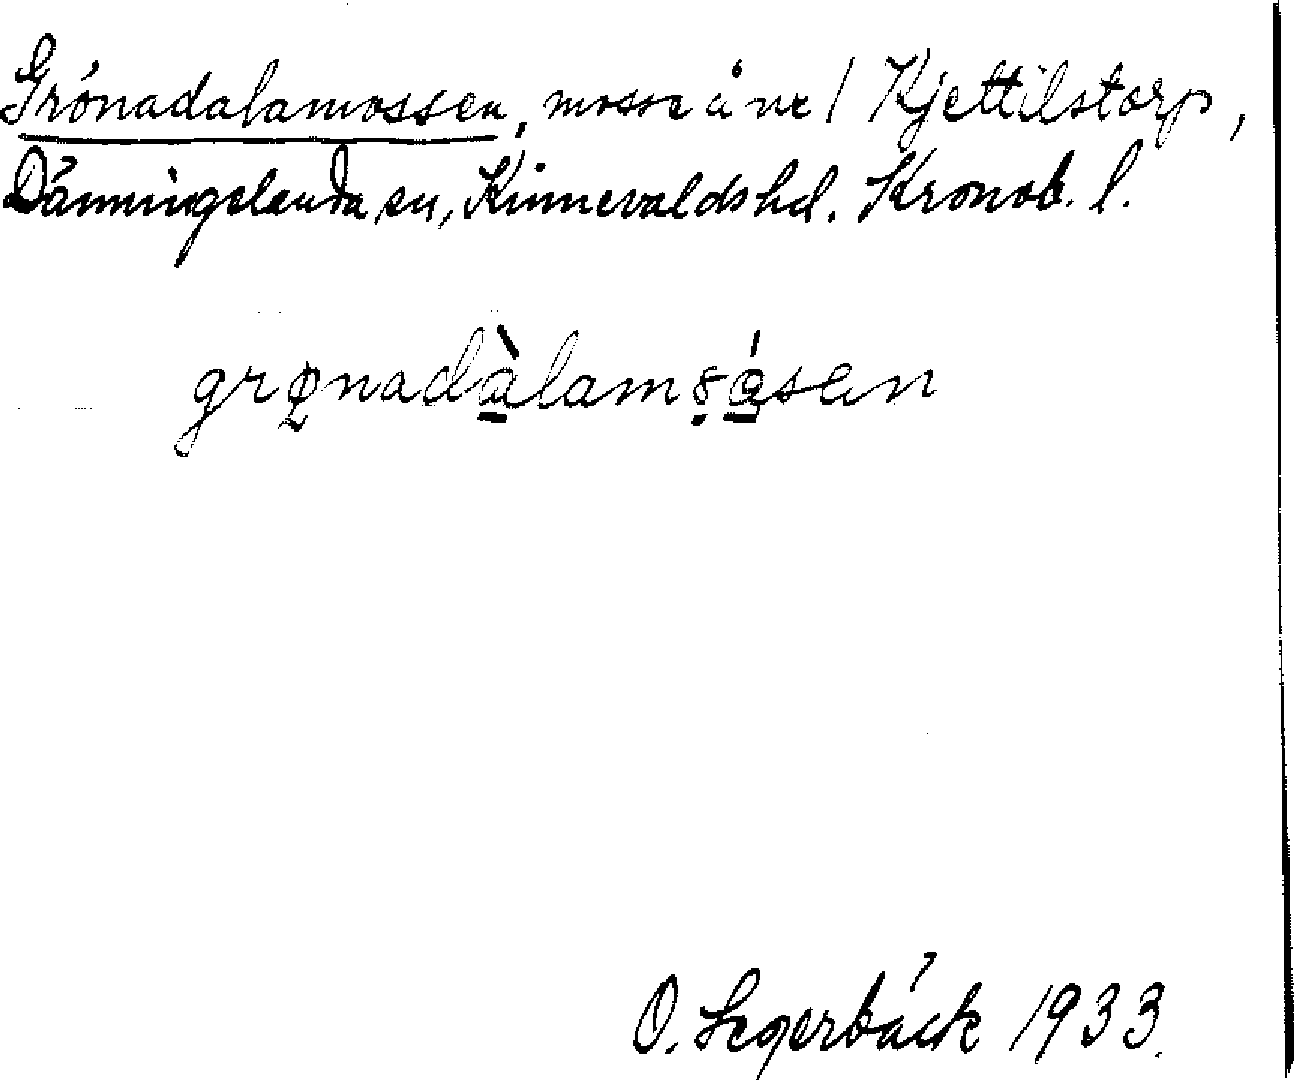 Grönadalamossen, mosse å nr 1 Kjettilstorp,
Dänningelanda sn, Kinnevalds hd. Kronob. l.
grønadàlamo̱sen
O. Segerbäck 1933.